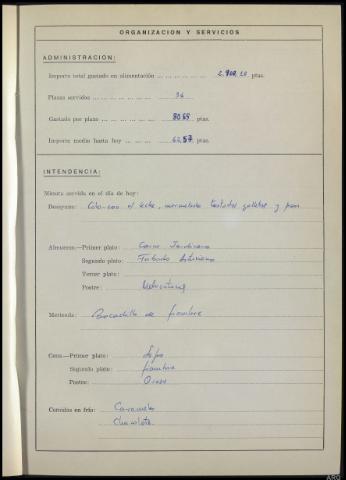 ORGANIZACION Y SERVICIOS
ADMINISTRACION:
Importe total gastado en alimentación ... 2.900,20 ptas.
Plazas servidos ... 36
Gastado por plaza ... 80,55 ptas.
Importe medio hasta hoy ... 62,57 ptas.
INTENDENCIA:
Minuta servida en el día de hoy:
Desayuno: Cola-cao el leche, mermelada tostadas galletas y pan
Almuerzo—Primer plato: Carne Jardinera
Segundo plato: Fabada Asturiana
Tercer plato:
Postre: Melocotones
Merienda: Bocadillo de fiambre
Cena—Primer plato: Sopa
Segundo plato: fiambre
Postre:
Comidas en frío: Caramelos
Chocolate
ARG